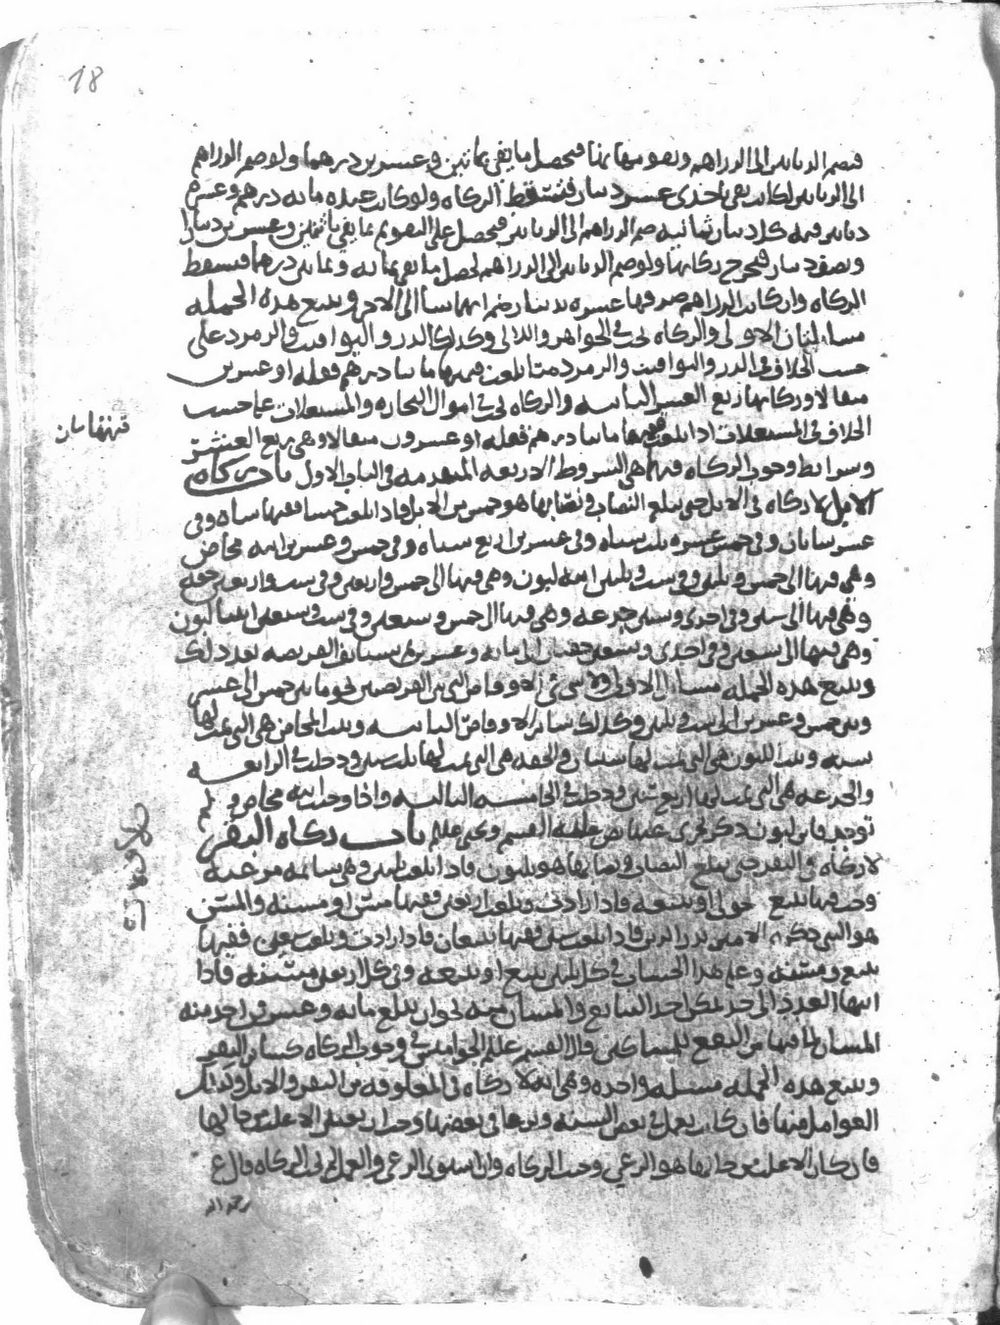 18
فيضم الدنانير الى الدراهم ويقومها بها فيحصل ما يفي بمائتين وعشرين درهما ولو ضم الدراهم
الى الدنانير لكانت تفي باحدى عشر دينار فتسقط الزكاه ولو كانت عنده مايه درهم وعشره
دنانير قيمه كل دينار ثمانيه ضم الدراهم الى الدنانير فيحصل على التقويم بما يفي باثنين وعشرين دينارا
ونصف دينار فيخرج زكاتها ولو ضم الدنانير الى الدراهم لحصل ما يفي بمايه وثمانين درهما فتسقط
الزكاه وان كانت الدراهم صرفها عشره بدينار ضم ايهما شا الى الاخر ويتبع هذه الجمله
مسالتان الاولى والزكاه تجب في الجواهر واللالي وكذلك الدر واليواقيت والزمرد على
حسب الخلاف في الدر واليواقيت والزمرد متى بلغت قيمتها مايتا درهم فعله او عشرين
مثقالا وزكاتها ربع العشر الثانيه والزكاه تجب في اموال التجاره والمستغلات على حسب
الخلاف في المستغلات اذا بلغت قيمتها مايتا درهم فعله او عشرون مثقالا وهي ربع العشر
وشرايط وجوب الزكاه فيها هي الشروط الاربعه المتقدمه في الباب الاول باب زكاه
الابل لا زكاه في الابل حتى تبلغ النصاب ونصابها هو خمس من الابل فاذا بلغت خمسا ففيها شاه وفي
عشر شاتان وفي خمس عشره ثلث شياه وفي عشرين اربع شياه وفي خمس وعشرين ابنه مخاض
وهي فيها الى خمس وثلثين وفي ست وثلثين ابنه لبون وهي فيها الى خمس واربعين وفي ست واربعين حقه
وهي فيها الى ستين وفي احدى وستين جذعه وهي فيها الى خمس وسبعين وفي ست وسبعين ابنتا لبون
وهي فيها الى تسعين وفي احدى وتسعين حقتان الى مايه وعشرين ثم يستانف الفريضه بعد ذلك
ويتبع هذه الجمله مسائل الاولى ولا شي في الاوقاص التي بين الفريضتين نحو ما بين خمس الى عشر
وبين خمس وعشرين الى ست وثلثين وكذلك سائر الاوقاص الثانيه وبنت المخاض هي التي تمت لها
سنه وبنت اللبون هي التي تمت لها سنتان والحقه هي التي تمت لها ثلث سنين ودخلت في الرابعه
والجذعه هي التي تمت لها اربع سنين ودخلت في الخامسه الثالثه واذا وجبت ابنه مخاض ولم
توجد فابن لبون ذكر يجزي عنها نص عليه القسم ويحيى عليلم باب زكاه البقر
لا زكاه في البقر حتى تبلغ النصاب ونصابها هو ثلثون فاذا بلغت ثلثين وهي سائمه مرعيه
وجب فيها تبيع حولي او تبيعه فاذا زادت وبلغت اربعين ففيها مسن او مسنه والمسن
هو الثني فاذا بلغت ستين ففيها تبيعان فاذا زادت وبلغت سبعين ففيها
تبيع ومسنه وعلى هذا الحساب في كل ثلثين تبيع او تبيعه وفي كل اربعين مسنه فاذا
انتهى العدد الى حد يمكن اخذ التبايع والمسان منه نحو ان تبلغ مايه وعشرين اخذ منه
المسان لما فيها من النفع للمساكين قال القسم عليلم الجواميس في وجوب الزكاه كسائر البقر
ويتبع هذه الجمله مسئله واحده وهي انه لا زكاه في المعلوفه من البقر والابل وكذلك
العوامل منها فان كانت تعمل في بعض السنه وترعى في بعضها وجب ان يعتبر الاغلب من حالها
فان كان الاغلب من حالها هو الرعي وجبت الزكاه وان استوى الرعي والعمل لم تجب الزكاه قال ع
رحمه الله